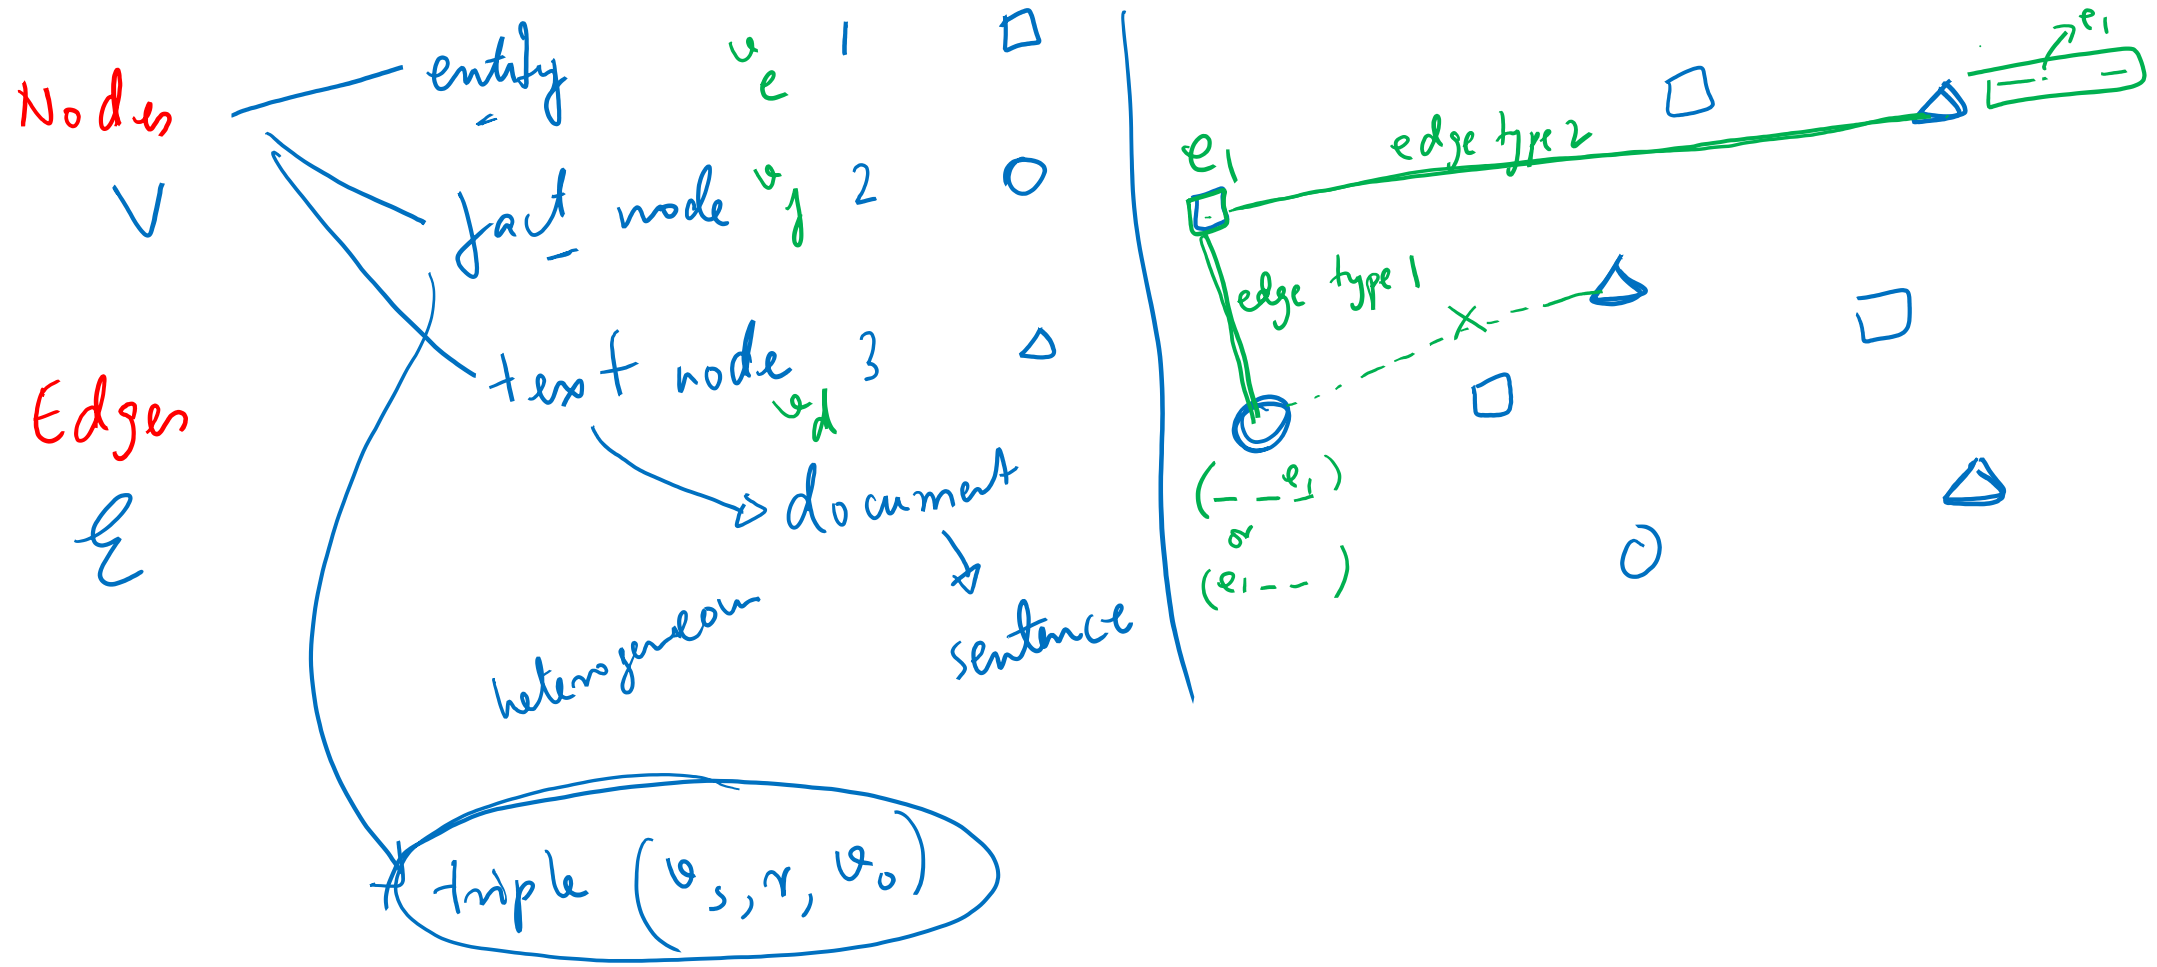 Nodes
V
Edges
E
entity v_e 1
fact node v_f 2
text node v_d 3
document
sentence
heterogeneous
triple (v_s, r, v_o)
e_1
edge type 2
e_1
edge type 1
x
(_ _ e_1)
or
(e_1 _ _)